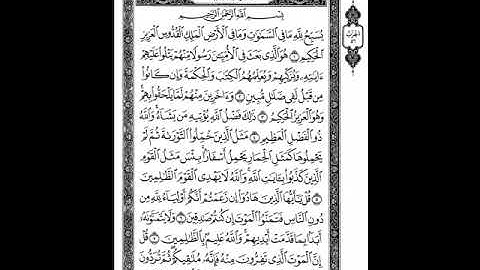 بِسْمِ اللَّهِ الرَّحْمَٰنِ الرَّحِيمِ
يُسَبِّحُ لِلَّهِ مَا فِي السَّمَٰوَٰتِ وَمَا فِي الْأَرْضِ الْمَلِكِ الْقُدُّوسِ الْعَزِيزِ
الْحَكِيمِ ۝ هُوَ الَّذِي بَعَثَ فِي الْأُمِّيِّينَ رَسُولًا مِّنْهُمْ يَتْلُوا عَلَيْهِمْ
ءَايَٰتِهِ وَيُزَكِّيهِمْ وَيُعَلِّمُهُمُ الْكِتَٰبَ وَالْحِكْمَةَ وَإِن كَانُوا
مِن قَبْلُ لَفِي ضَلَٰلٍ مُّبِينٍ ۝ وَءَاخَرِينَ مِنْهُمْ لَمَّا يَلْحَقُوا بِهِمْ
وَهُوَ الْعَزِيزُ الْحَكِيمُ ۝ ذَٰلِكَ فَضْلُ اللَّهِ يُؤْتِيهِ مَن يَشَاءُ وَاللَّهُ
ذُو الْفَضْلِ الْعَظِيمِ ۝ مَثَلُ الَّذِينَ حُمِّلُوا التَّوْرَىٰةَ ثُمَّ لَمْ
يَحْمِلُوهَا كَمَثَلِ الْحِمَارِ يَحْمِلُ أَسْفَارًا بِئْسَ مَثَلُ الْقَوْمِ
الَّذِينَ كَذَّبُوا بِـَٔايَٰتِ اللَّهِ وَاللَّهُ لَا يَهْدِي الْقَوْمَ الظَّٰلِمِينَ
۝ قُلْ يَٰأَيُّهَا الَّذِينَ هَادُوا إِن زَعَمْتُمْ أَنَّكُمْ أَوْلِيَاءُ لِلَّهِ مِن
دُونِ النَّاسِ فَتَمَنَّوُا الْمَوْتَ إِن كُنتُمْ صَٰدِقِينَ ۝ وَلَا يَتَمَنَّوْنَهُ
أَبَدًا بِمَا قَدَّمَتْ أَيْدِيهِمْ وَاللَّهُ عَلِيمٌ بِالظَّٰلِمِينَ ۝ قُلْ
إِنَّ الْمَوْتَ الَّذِي تَفِرُّونَ مِنْهُ فَإِنَّهُ مُلَٰقِيكُمْ ثُمَّ تُرَدُّونَ